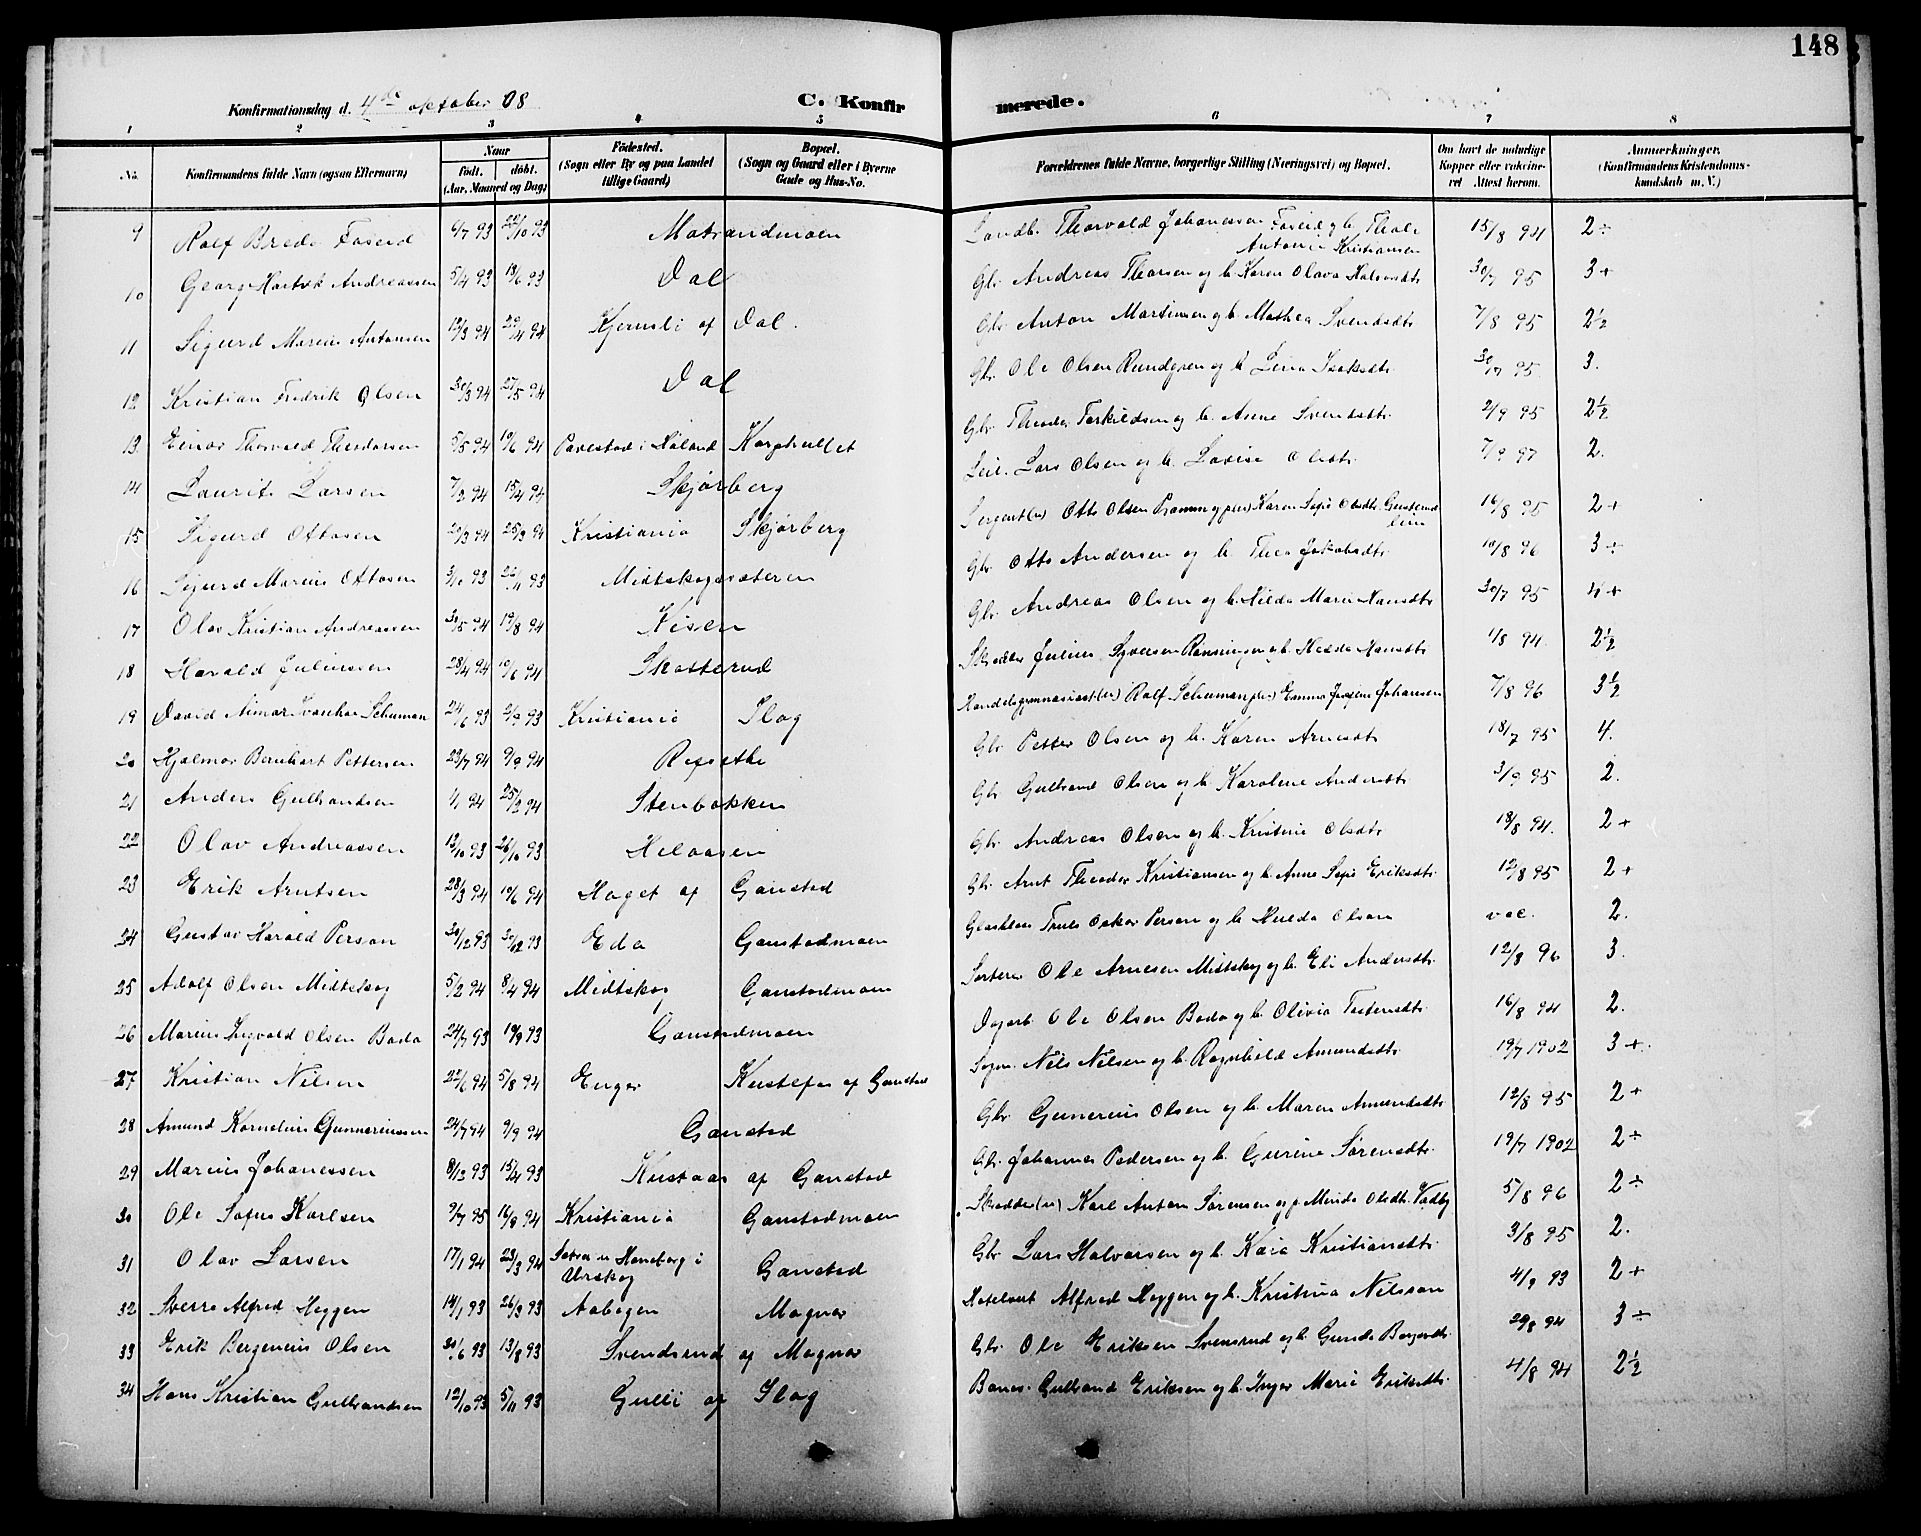 148
Konfirmationsdag d. 4de oktober 08
C. Konfirmerede.
1 2 3 4 5 6 7 8
No. Konfirmandens fulde Navn (ogsaa Efternavn) Naar født. døbt. (Aar, Maaned og Dag) Fødested. (Sogn eller By og paa Landet tillige Gaard) Bopæl. (Sogn og Gaard eller i Byerne Gade og Hus-No. Forældrenes fulde Navne, borgerlige Stilling (Næringsvei) og Bopæl. Om havt de naturlige Kopper eller vakcineret Attest herom. Anmærkninger. (Konfirmandens Kristendomskundskab m. V.)
9 Rolf Brede Foseid 6/7 93 22/10 93 Matrandmoen Landh. Thorvald Johanessen Foseid og h. Antonie Kristiansen 15/8 94 2÷
10 Georg Hartvik Andreassen 5/4 93 18/6 93 Dal Gbr. Andreas Thorsen og h. Karen Olava 30/7 95 3+
11 Sigurd Marius Antonsen 12/3 94 29/4 94 Kjernsli af Dal. Gbr. Anton Martinsen og h. Mathea Svendsdtr. 7/8 95 2½
12 Kristian Fredrik Olsen 30/3 94 27/5 94 Dal Gbr. Ole Olsen Rundgren og h. Lina Isaksdtr. 30/7 95. 3.
13 Einar Thorvald Theodorsen 5/5 94 10/6 94 i Høland Korphullet Gbr. Theodor Terkildsen og h. Anne Svendsdtr. 2/9 95 2½
14 Laurits Larsen 7/2 94 15/4 94 Skjørberg Leil. Lars Olsen og h. Lovise Olsdtr. 7/9 97 2.
15 Sigurd Ottosen 20/3 94 25/3 94 Kristiania Skjørberg Sergent (u) Otto Olsen og p(u) Karen Sofie Olsdtr. 16/8 95 2+
16 Sigurd Marius Ottosen 3/10 93 26/11 93 Midtskogsæteren Gbr. Otto Andersen og h. Thea Jakobsdtr. 10/8 96 3÷
17 Olav Kristian Andreassen 30/5 94 19/8 94 Nisen Gbr. Andreas Olsen og h. Hilda Marie Hansdtr. 30/7 95 4+
18 Harald Juliussen 28/4 94 10/6 94 Skotterud Skrædder Julius Syversen Rønningen og h. Hansdtr. 1/8 94. 2½
19 David Aimar Ivanhoe Schuman 24/6 93 2/9 93 Kristiania Slog Handelsgymnasiast (u) Rolf Schuman p(u) Emma Josefine Johansen 7/8 96 3½
20 Hjalmar Bernhart Pettersen 23/7 94 9/9 94 Gbr. Petter Olsen og h. Karen Arnesdtr. 18/7 95 4.
21 Anders Gulbrandsen 4/1 94 25/2 94 Stenbakken Gbr. Gulbrand Olsen og h. Karoline Andersdtr. 3/9 95 2.
22 Olav Andreassen 12/10 93 26/10 93 Helaasen Gbr. Andreas Olsen og h. Kristine Olsdtr. 18/8 94. 2+
23 Erik Arntsen 28/3 94 10/6 94 Haget af Ganstad Gbr. Arnt Theodor Kristiansen og h. Anne Sofie Eriksdtr. 12/8 95 2+
24 Gustav Harald Person 30/12 93 30/12 93 Eda Ganstadmoen Glasblæs. Truls Oskar Person og h. Hulda Olson vac. 2.
25 Adolf Olsen Midtskog 5/2 94 8/4 94 Midtskog Ganstadmoen Sorterer Ole Arnesen Midtskog og h. Eli Andersdtr. 12/8 96 3.
26 Marius Sigvald Olsen Boda 24/7 93 10/9 93 Ganstadmoen Dagarb. Ole Olsen Boda og h. Olivia 16/8 94 2.
27 Kristian Nilsen 22/6 94 5/8 94 Enger af Ganstad Nils Nilsen og h. Ragnhild Amundsdtr. 19/7 1902 3+
28 Amund Kornelius Gunneriussen 24/7 94 9/9 94 Ganstad Gbr. Gunerius Olsen og h. Maren Amundsdtr. 12/8 95 2+
29 Marius Johanessen 8/12 93 15/4 93 af Ganstad Gbr. Johannes Pedersen og h. Gurine Sørensdtr. 19/7 1902 2÷
30 Ole Sofus Karlsen 9/7 95 16/8 94 Kristiania Ganstadmoen Skrædder (u) Karl Anton Sørensen og p Minda Olsdtr. 5/8 96 2÷
31 Olav Larsen 17/1 94 23/3 94 u. Haneborg i Urskog Ganstad Gbr. Lars Halvorsen og h. Kaia Kristiansdtr. 3/8 95 2.
32 Sverre Alfred Heggen 14/1 93 26/3 93 Aabogen Magnor Hotelvert Alfred Heggen og h. Kristina Nilsson 4/9 93 2+
33 Erik Bergenius Olsen 30/6 93 13/8 93 Svendsrud af Magnor Gbr. Ole Eriksen Svensrud og h. Gunda 29/8 94 3÷
34 Hans Kristian Gulbrandsen 12/10 93 5/11 93 Gulli af Slog Gulbrand Eriksen og h. Inger Marie Eriksdtr. 4/8 94 2½